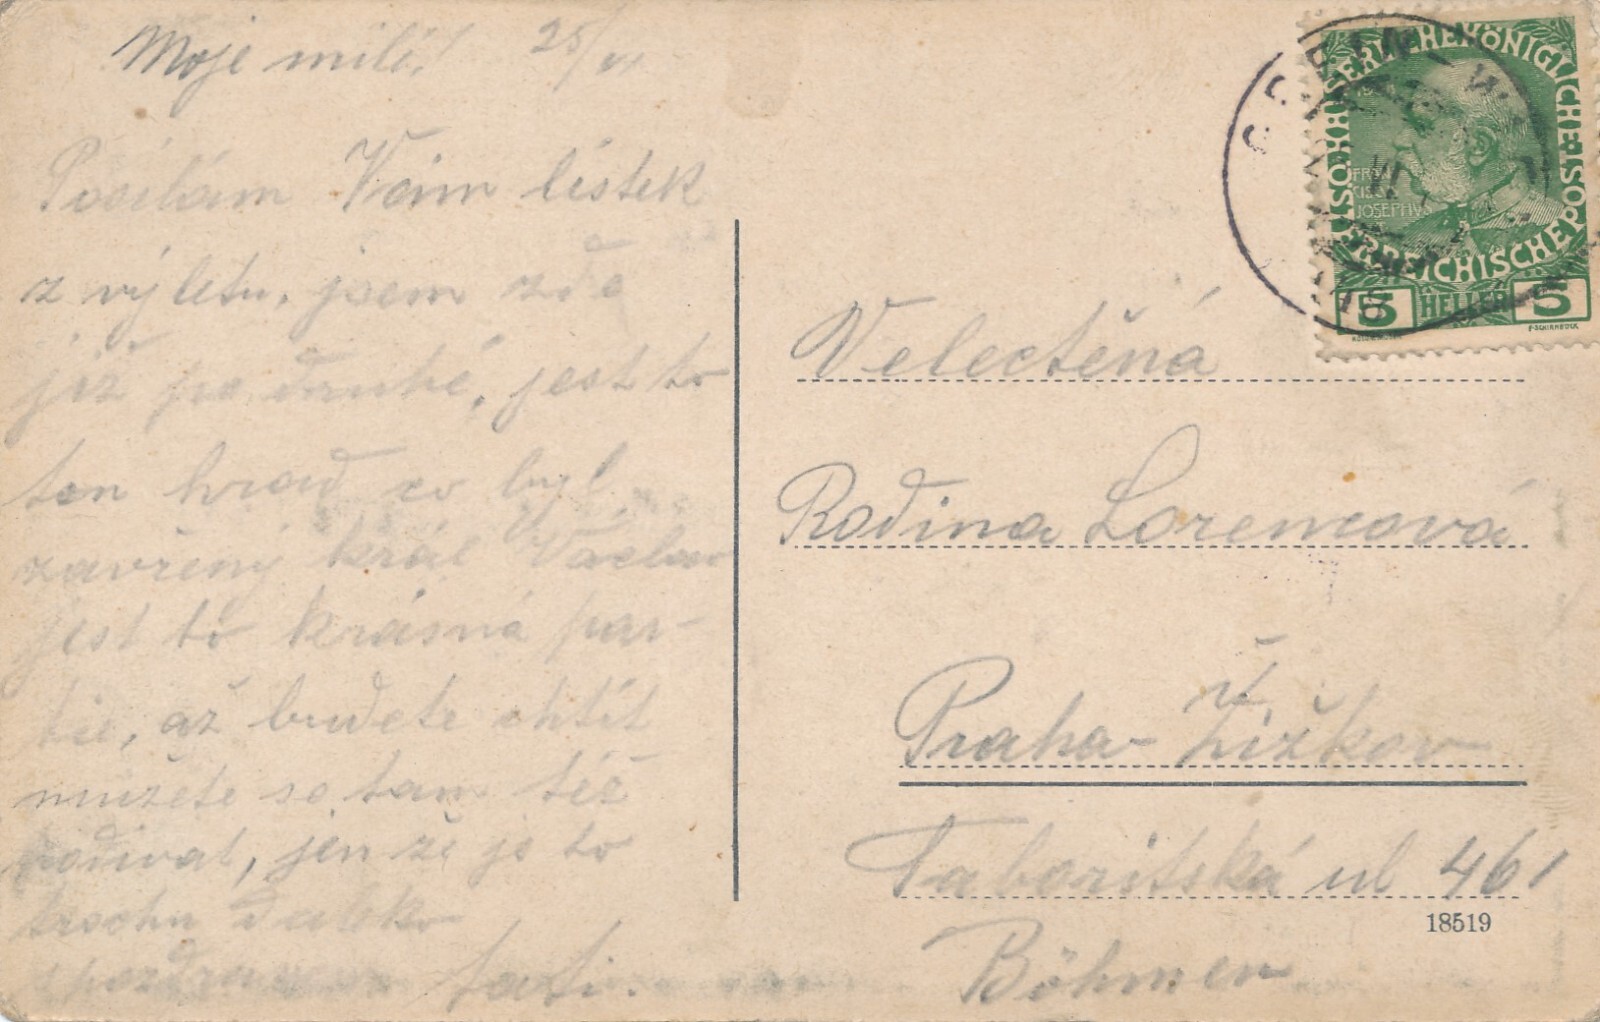 Moje milé! 25/VI
Posílám Vám lístek
z výletu, jsem zde
již po druhé, jest to
ten hrad co byl
zavřený král Václav
jest to krásná par-
tie, až budete chtít
můžete se tam též
podívat, jenže je to
trochu daleko
tati.
Velectěná
Rodina Lorencová
Praha - Žižkov
Taboritská ul 461
Böhmen
18519
KAISERLICHE KÖNIGLICHE
ÖSTERREICHISCHE POST
FRAN
CISC
JOSEPHVS
5 HELLER 5